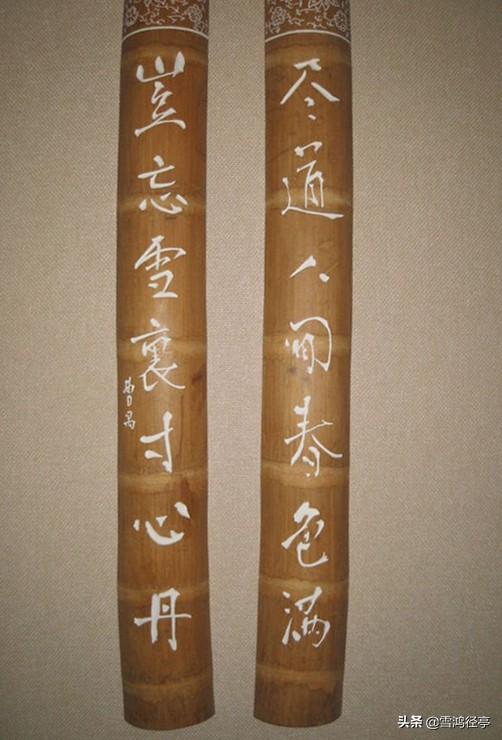 尽道人间春色满
岂忘雪裏寸心丹
曹禺
头条 @雪鸿径亭